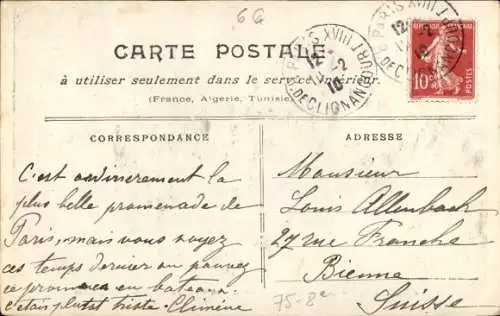 6G
PARIS XVIII
12
2
10
R. DECLIGNANCOURT
PARIS XVIII
12
2
10
R. DECLIGNANCOURT
10c
POSTES
CARTE POSTALE
à utiliser seulement dans le service intérieur
(France, Algerie, Tunisie)
CORRESPONDANCE
ADRESSE
C'est ordinairement la
plus belle promenade de
Paris, mais vous voyez
ces temps dernier on pouvez
promener en bateau.
c'etais plutot triste. Climène
Monsieur
Louis Allenbach
27 rue Franche
Bienne
Suisse
75-8e